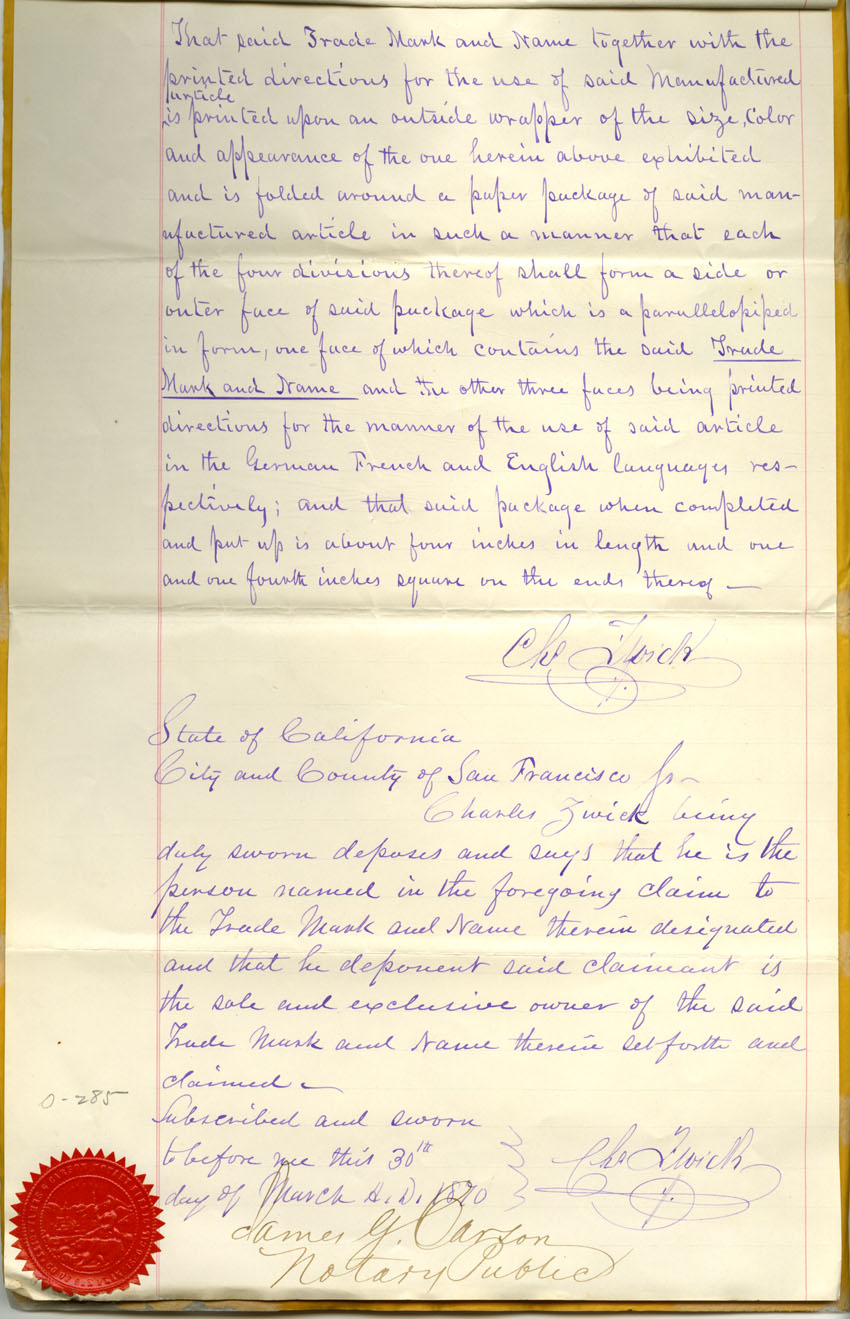 That said Trade Mark and Name together with the
printed directions for the use of said Manufactured
article
is printed upon an outside wrapper of the size, Color
and appearance of the one herein above exhibited
and is folded around a paper package of said man-
ufactured article in such a manner that each
of the four divisions thereof shall form a side or
outer face of said package which is a parallelopiped
in form, one face of which contains the said Trade
Mark and Name and the other three faces being printed
directions for the manner of the use of said article
in the German French and English languages res-
pectively; and that said package when completed
and put up is about four inches in length and one
and one fourth inches square on the ends thereof —
Chs Zwick
State of California
City and County of San Francisco ss—
Charles Zwick being
duly sworn deposes and says that he is the
person named in the foregoing claim to
the Trade Mark and Name therein designated
and that he deponent said claimant is
the sole and exclusive owner of the said
Trade Mark and Name therein set forth and
claimed —
O-285
Subscribed and sworn
to before me this 30th
day of March A.D. 1870
Chs Zwick
James G. Carson
Notary Public